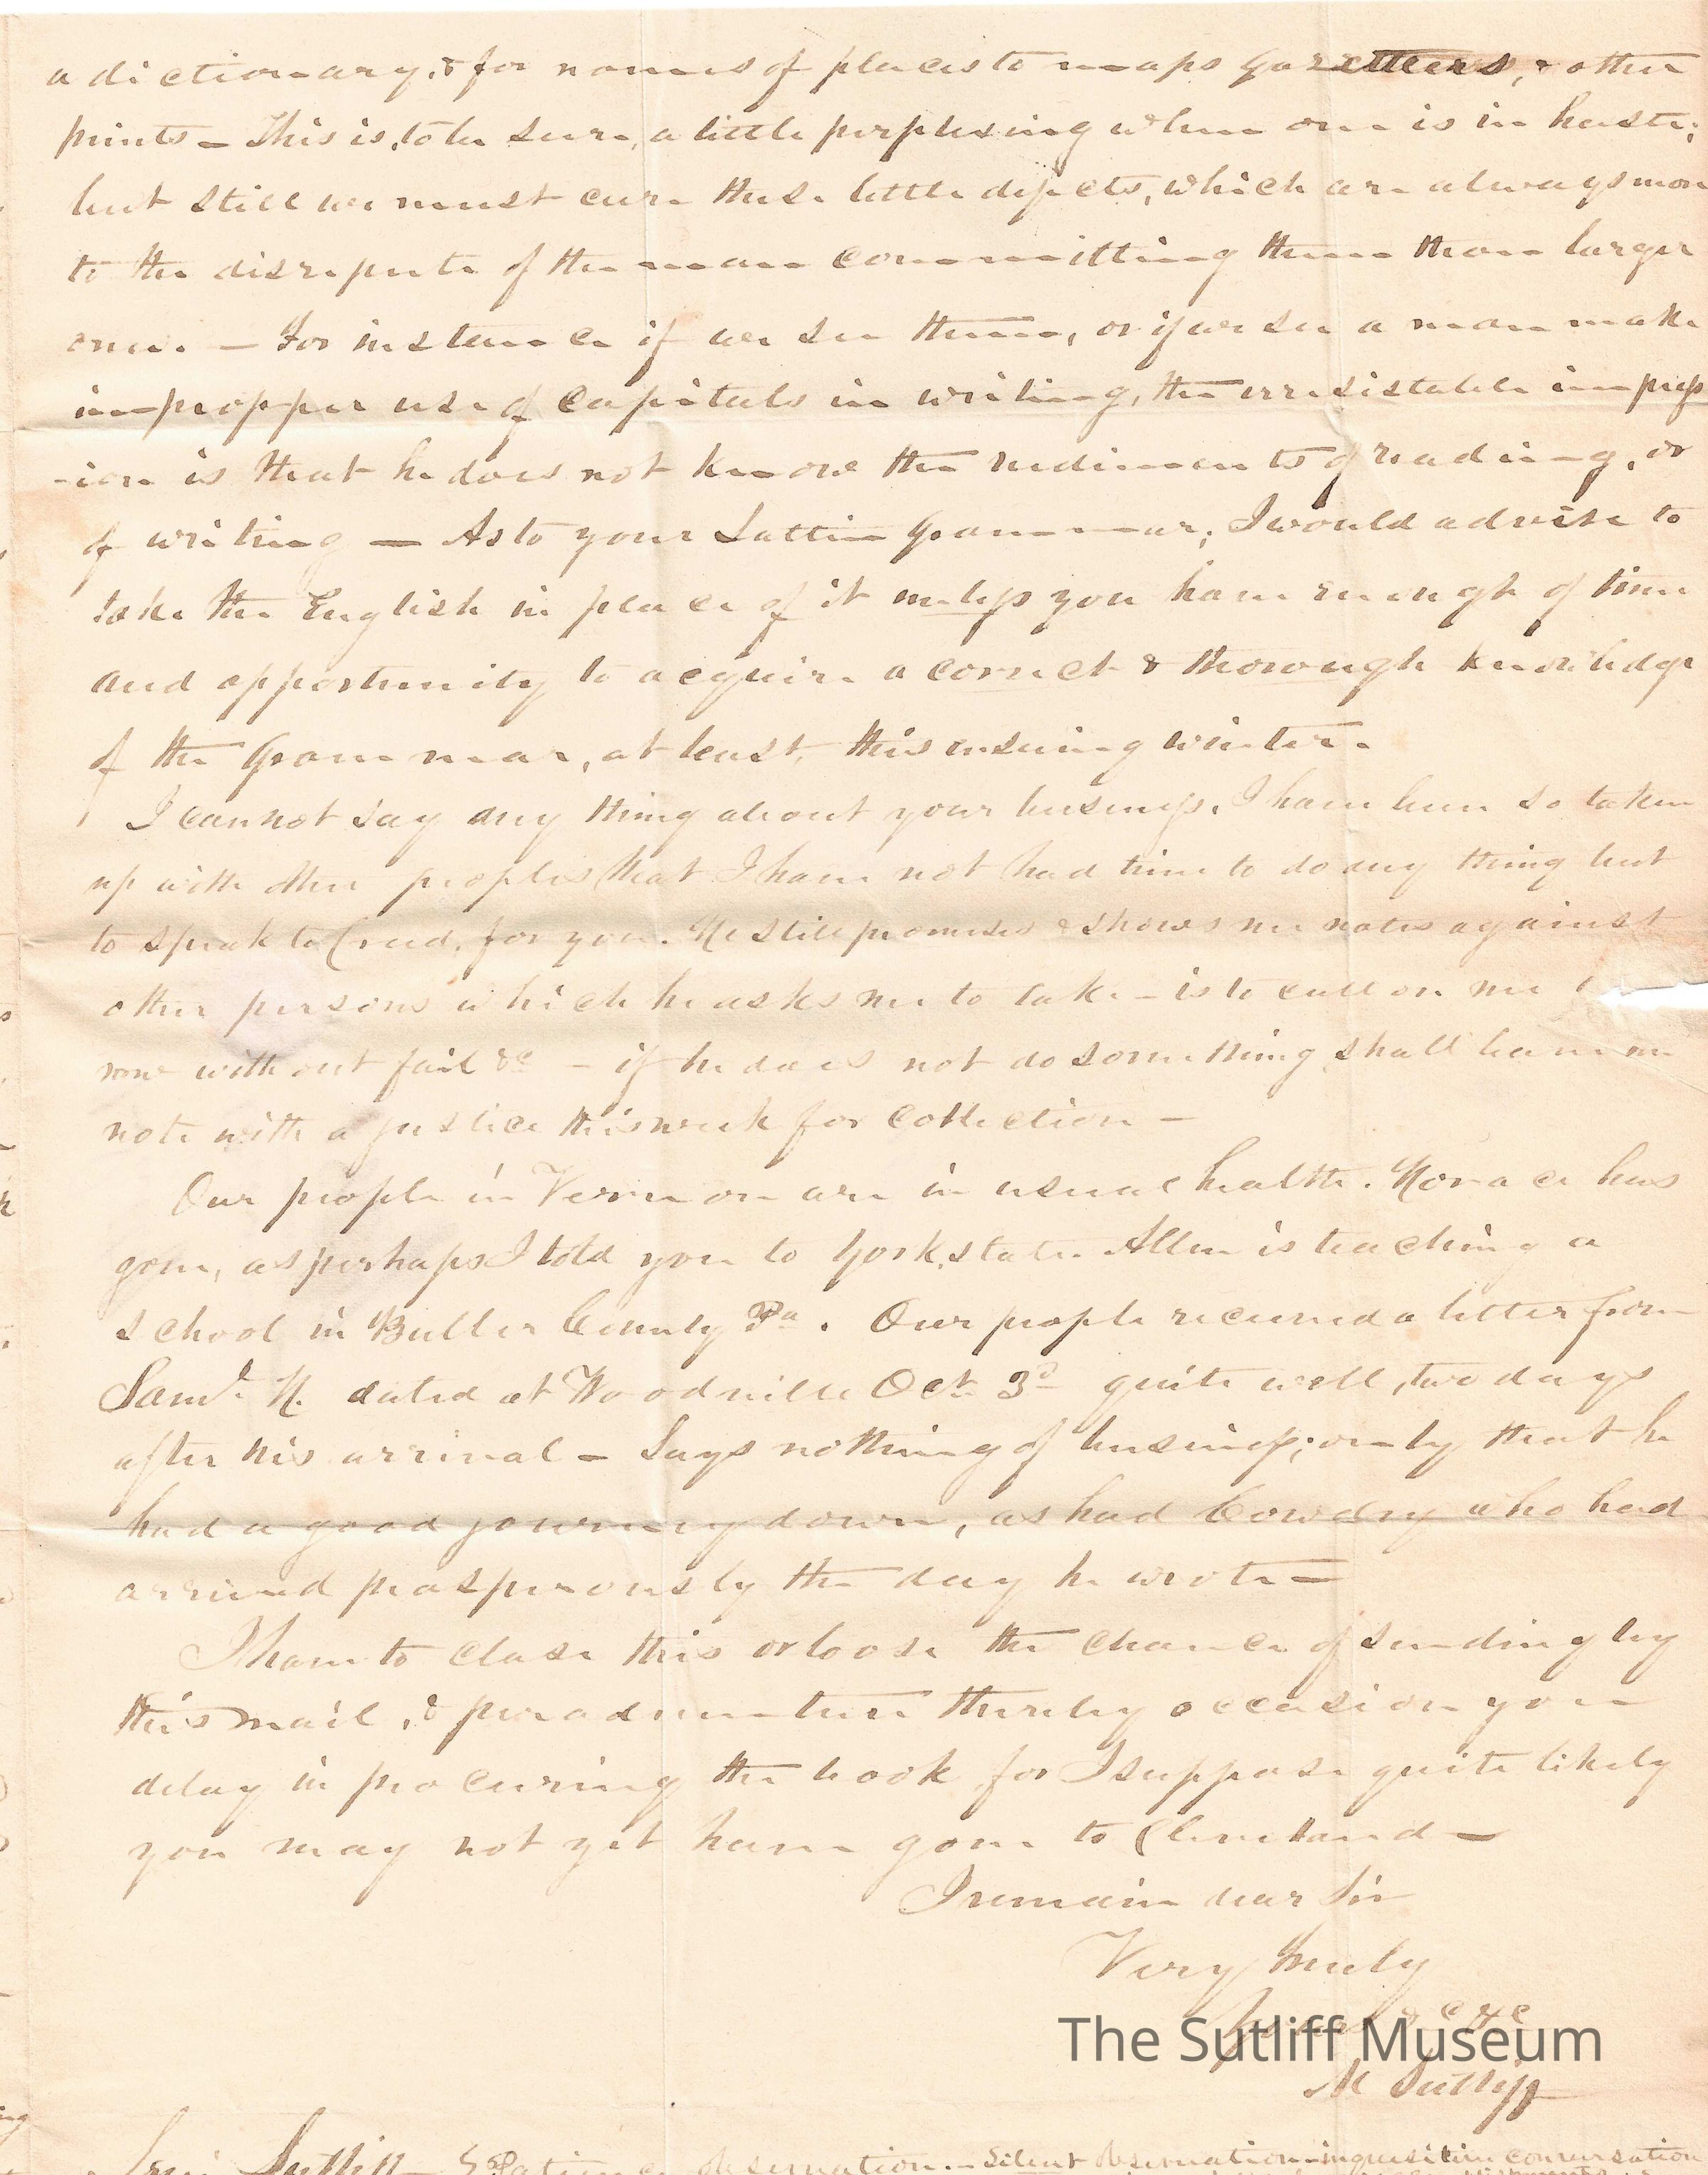 a dictionary, & for names of places to maps gazetteers, & other
prints – This is, to be sure, a little perplexing when one is in haste;
but still we must cure these little defects, which are always more
to the disrepute of the man committing them than larger
ones. – For instance if we see them, or if we see a man make
impropper use of capitals in writing, the irresistable impress
-ion is that he does not know the rudiments of reading, or
of writing – As to your Lattin Grammar; I would advise to
take the English in place of it unless you have enough of time
and opportunity to acquire a correct & thorough knowledge
of the Grammar, at least, this ensuing winter.
I cannot say any thing about your business. I have been so taken
up with other peoples that I have not had time to do any thing but
to speak to Creed, for you. He still promises & shows me notes against
other persons which he asks me to take – is to call on me
row without fail &c – if he does not do something shall leave
note with a justice this week for collection –
Our people in Vernon are in usual health. Horace has
gone, as perhaps I told you to York state. Allen is teaching a
school in Butler County Pa. Our people received a letter from
Saml. H. dated at Woodville Oct. 3d quite well, two days
after his arrival – Says nothing of business; only that he
had a good journey down, as had Cowdry who had
arrived prosperously the day he wrote –
I have to close this or loose the chance of sending by
this mail, & peradventure thereby occasion you
delay in procuring the book for I suppose quite likely
you may not yet have gone to Cleveland –
I remain dear Sir
Very truly
Yours &c &c
The Sutliff Museum
M Sutliff
Levi Sutliff – Patience observation. – Silent observation – inquisitive conversation